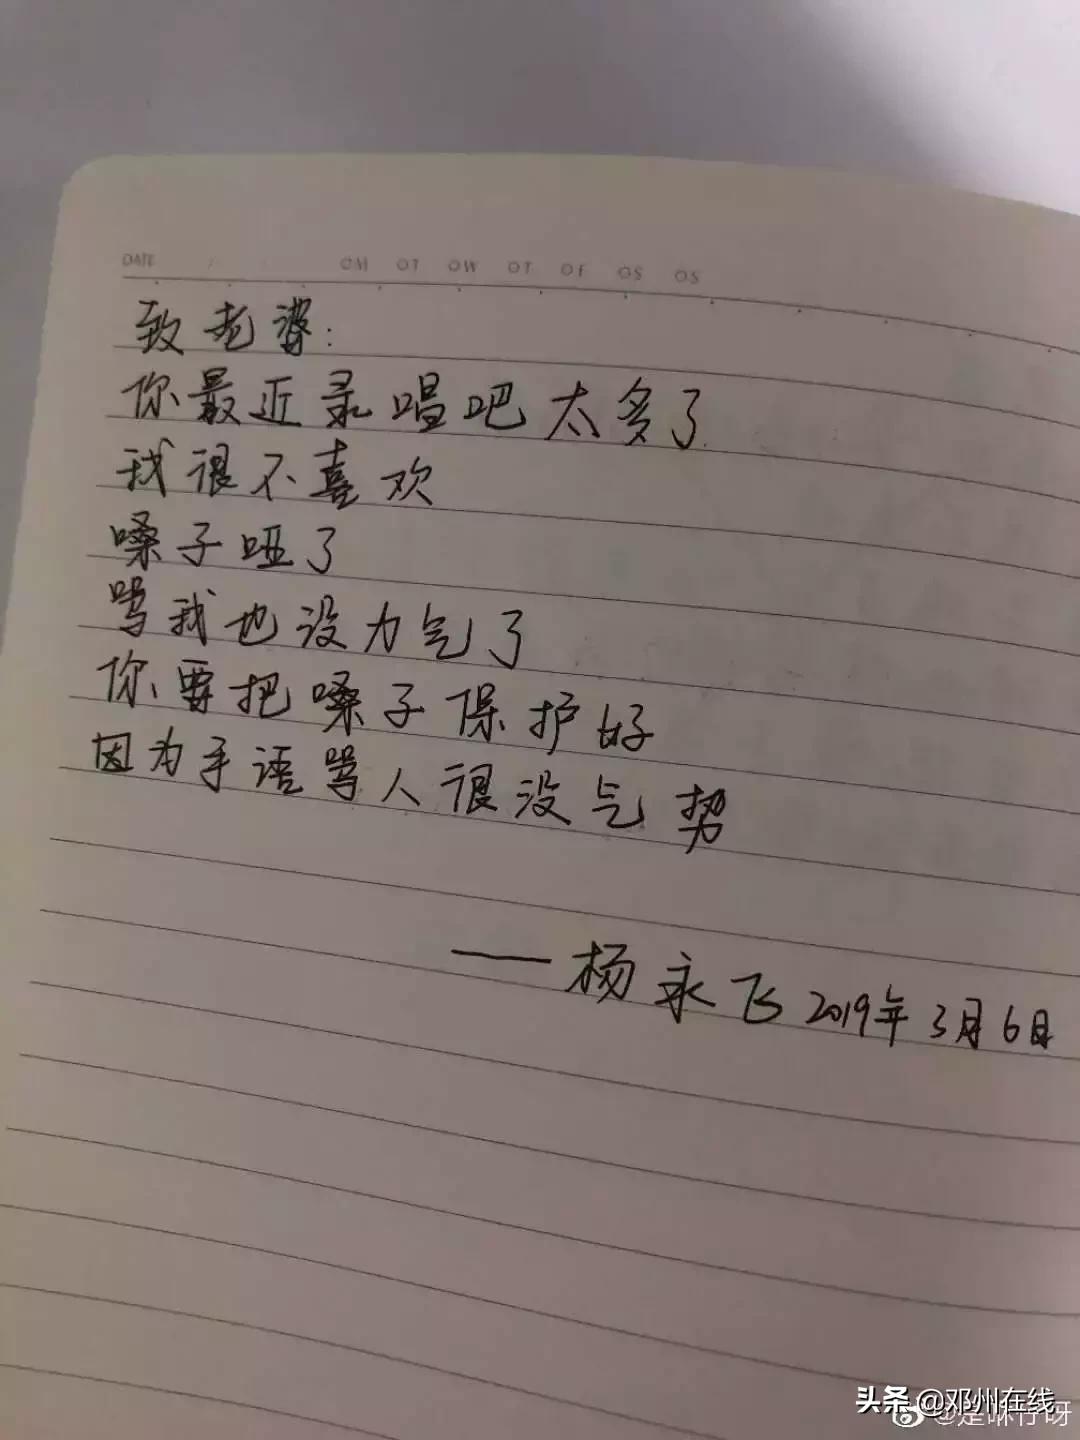 DATE
OM OT OW OT OF OS OS
致老婆:
你最近录唱吧太多了
我很不喜欢
嗓子哑了
骂我也没力气了
你要把嗓子保护好
因为手语骂人很没气势
——杨永飞 2019年3月6日
头条 @邓州在线